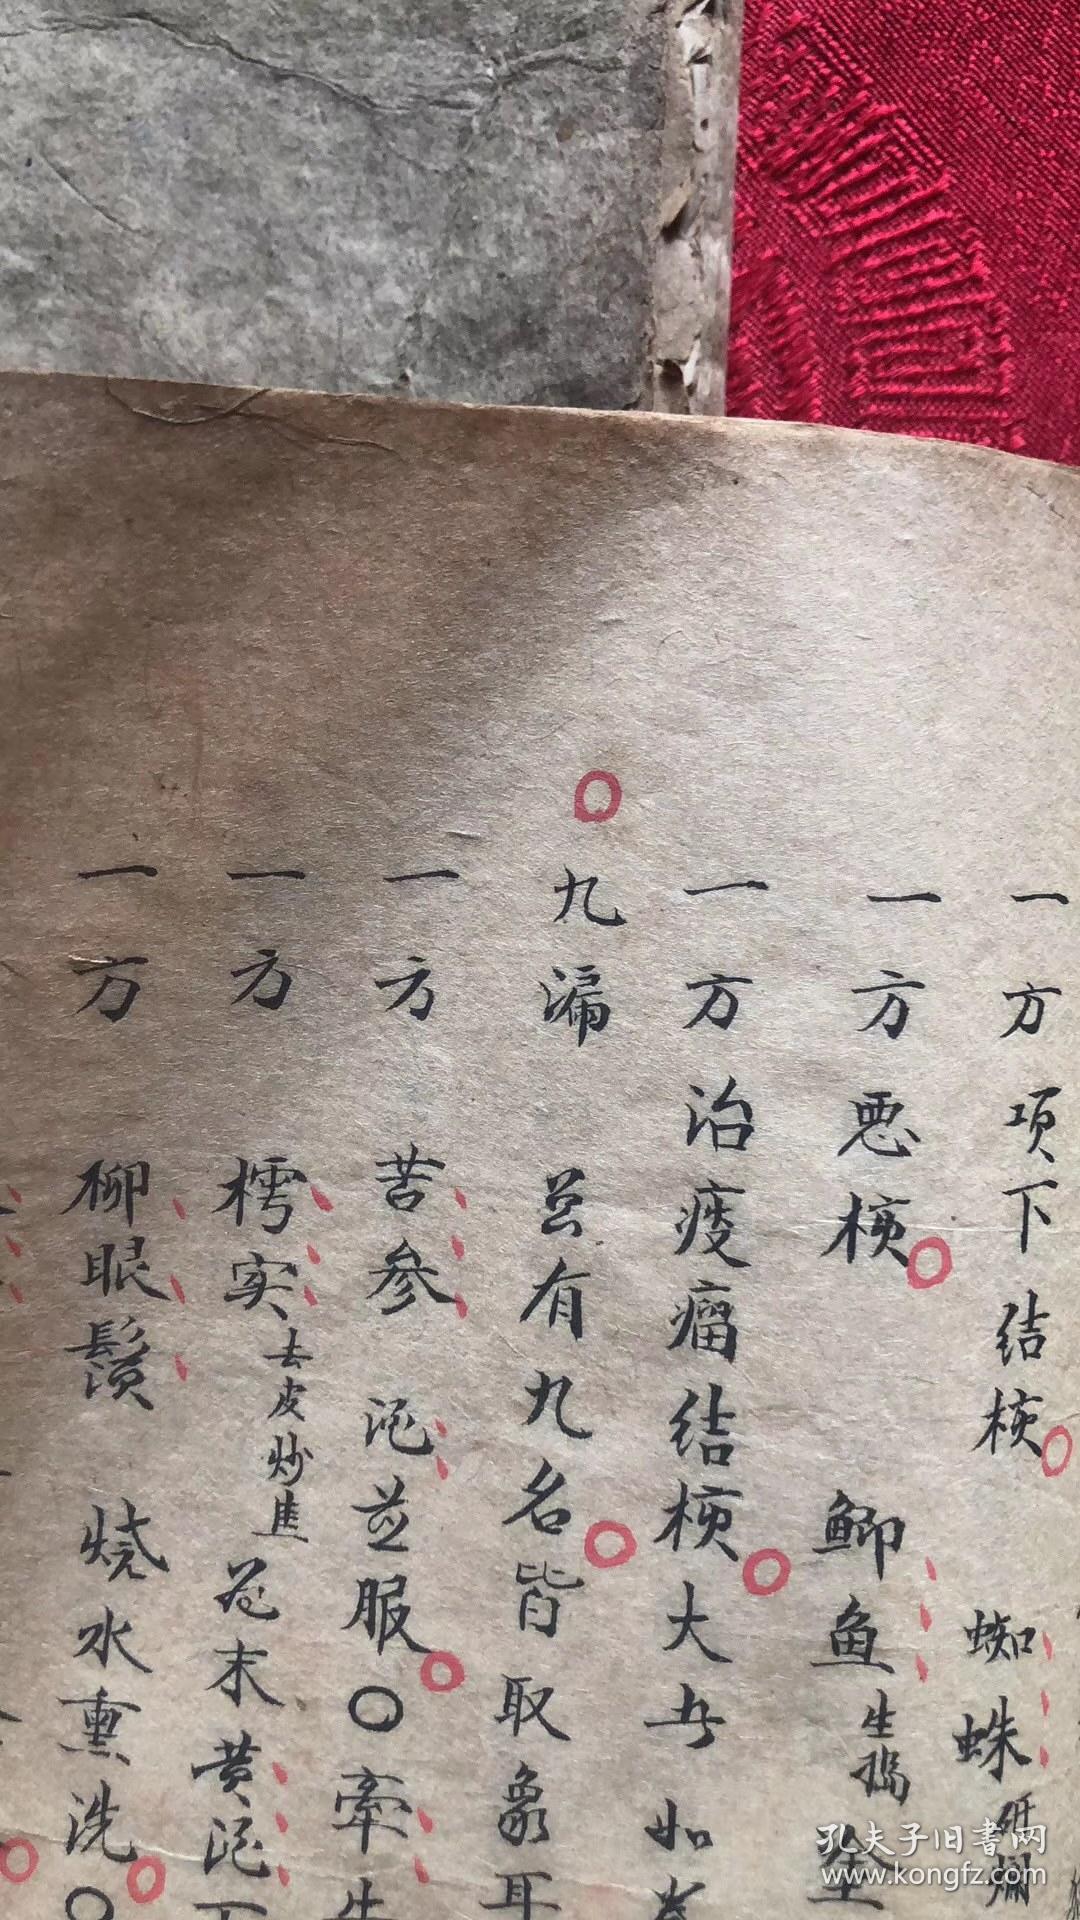 一方项下结核○蜘蛛研烂
一方恶核○鲫鱼生捣
一方治疫瘤结核○大
○九漏总有九名○皆取象耳
一方苦参酒並服○○牽牛
一方樗实去皮炒焦为末黄酒下
一方柳眼鬚烧水熏洗○○
孔夫子旧书网
www.kongfz.com